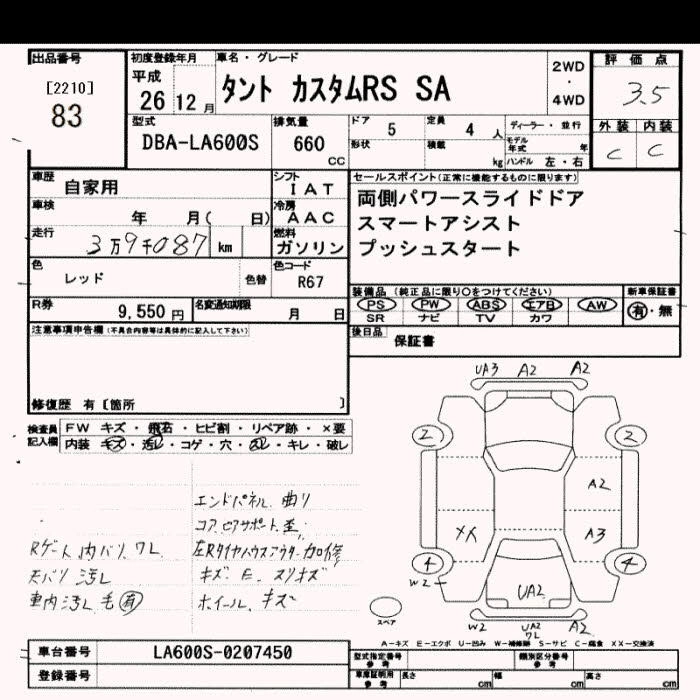 出品番号
[2210]
83
初度登録年月
平成
26 12 月
車名・グレード
タント カスタムRS SA
2WD
・
4WD
評価点
3.5
外装 内装
C C
型式
DBA-LA600S
排気量
660
CC
ドア 5
定員 4 人
ディーラー・並行
形状
積載 kg
モデル年式 年
ハンドル 左・右
車歴 自家用
シフト
I A T
車検 年 月( 日)
冷房
A A C
走行 3万9千087 km
燃料
ガソリン
色 レッド 色替
色コード
R67
R券 9,550 円
名変通知期限 月 日
セールスポイント(正常に機能するものに限ります)
両側パワースライドドア
スマートアシスト
プッシュスタート
装備品 (純正品に限り○をつけてください)
PS PW ABS エアB AW
SR ナビ TV カワ
新車保証書
有・無
後日品 保証書
注意事項申告欄(不具合内容等は具体的に記入して下さい)
修復歴 有〔箇所 〕
検査員記入欄
FW キズ・飛石・ヒビ割・リペア跡・×要
内装 キズ・汚レ・コゲ・穴・スレ・キレ・破レ
エンドパネル 曲り
コアサポート 歪
Rゲート内バリ ワレ
左Rタイヤハウスアウター 加修
天バリ 汚レ
キズ E スリキズ
車内汚レ 毛 有
ホイール キズ
UA3 A2 A2
2 2
A2
XX A3
4 4
W2
UA2
スペア
W2 UA2 ワレ A2
A-キズ E-エクボ U-凹み W-補修跡 S-サビ C-腐食 XX-交換済
車台番号 LA600S-0207450
登録番号
型式指定番号 参考
類別区分番号 参考
車庫証明用 参考 長さ cm 幅 cm 高さ cm